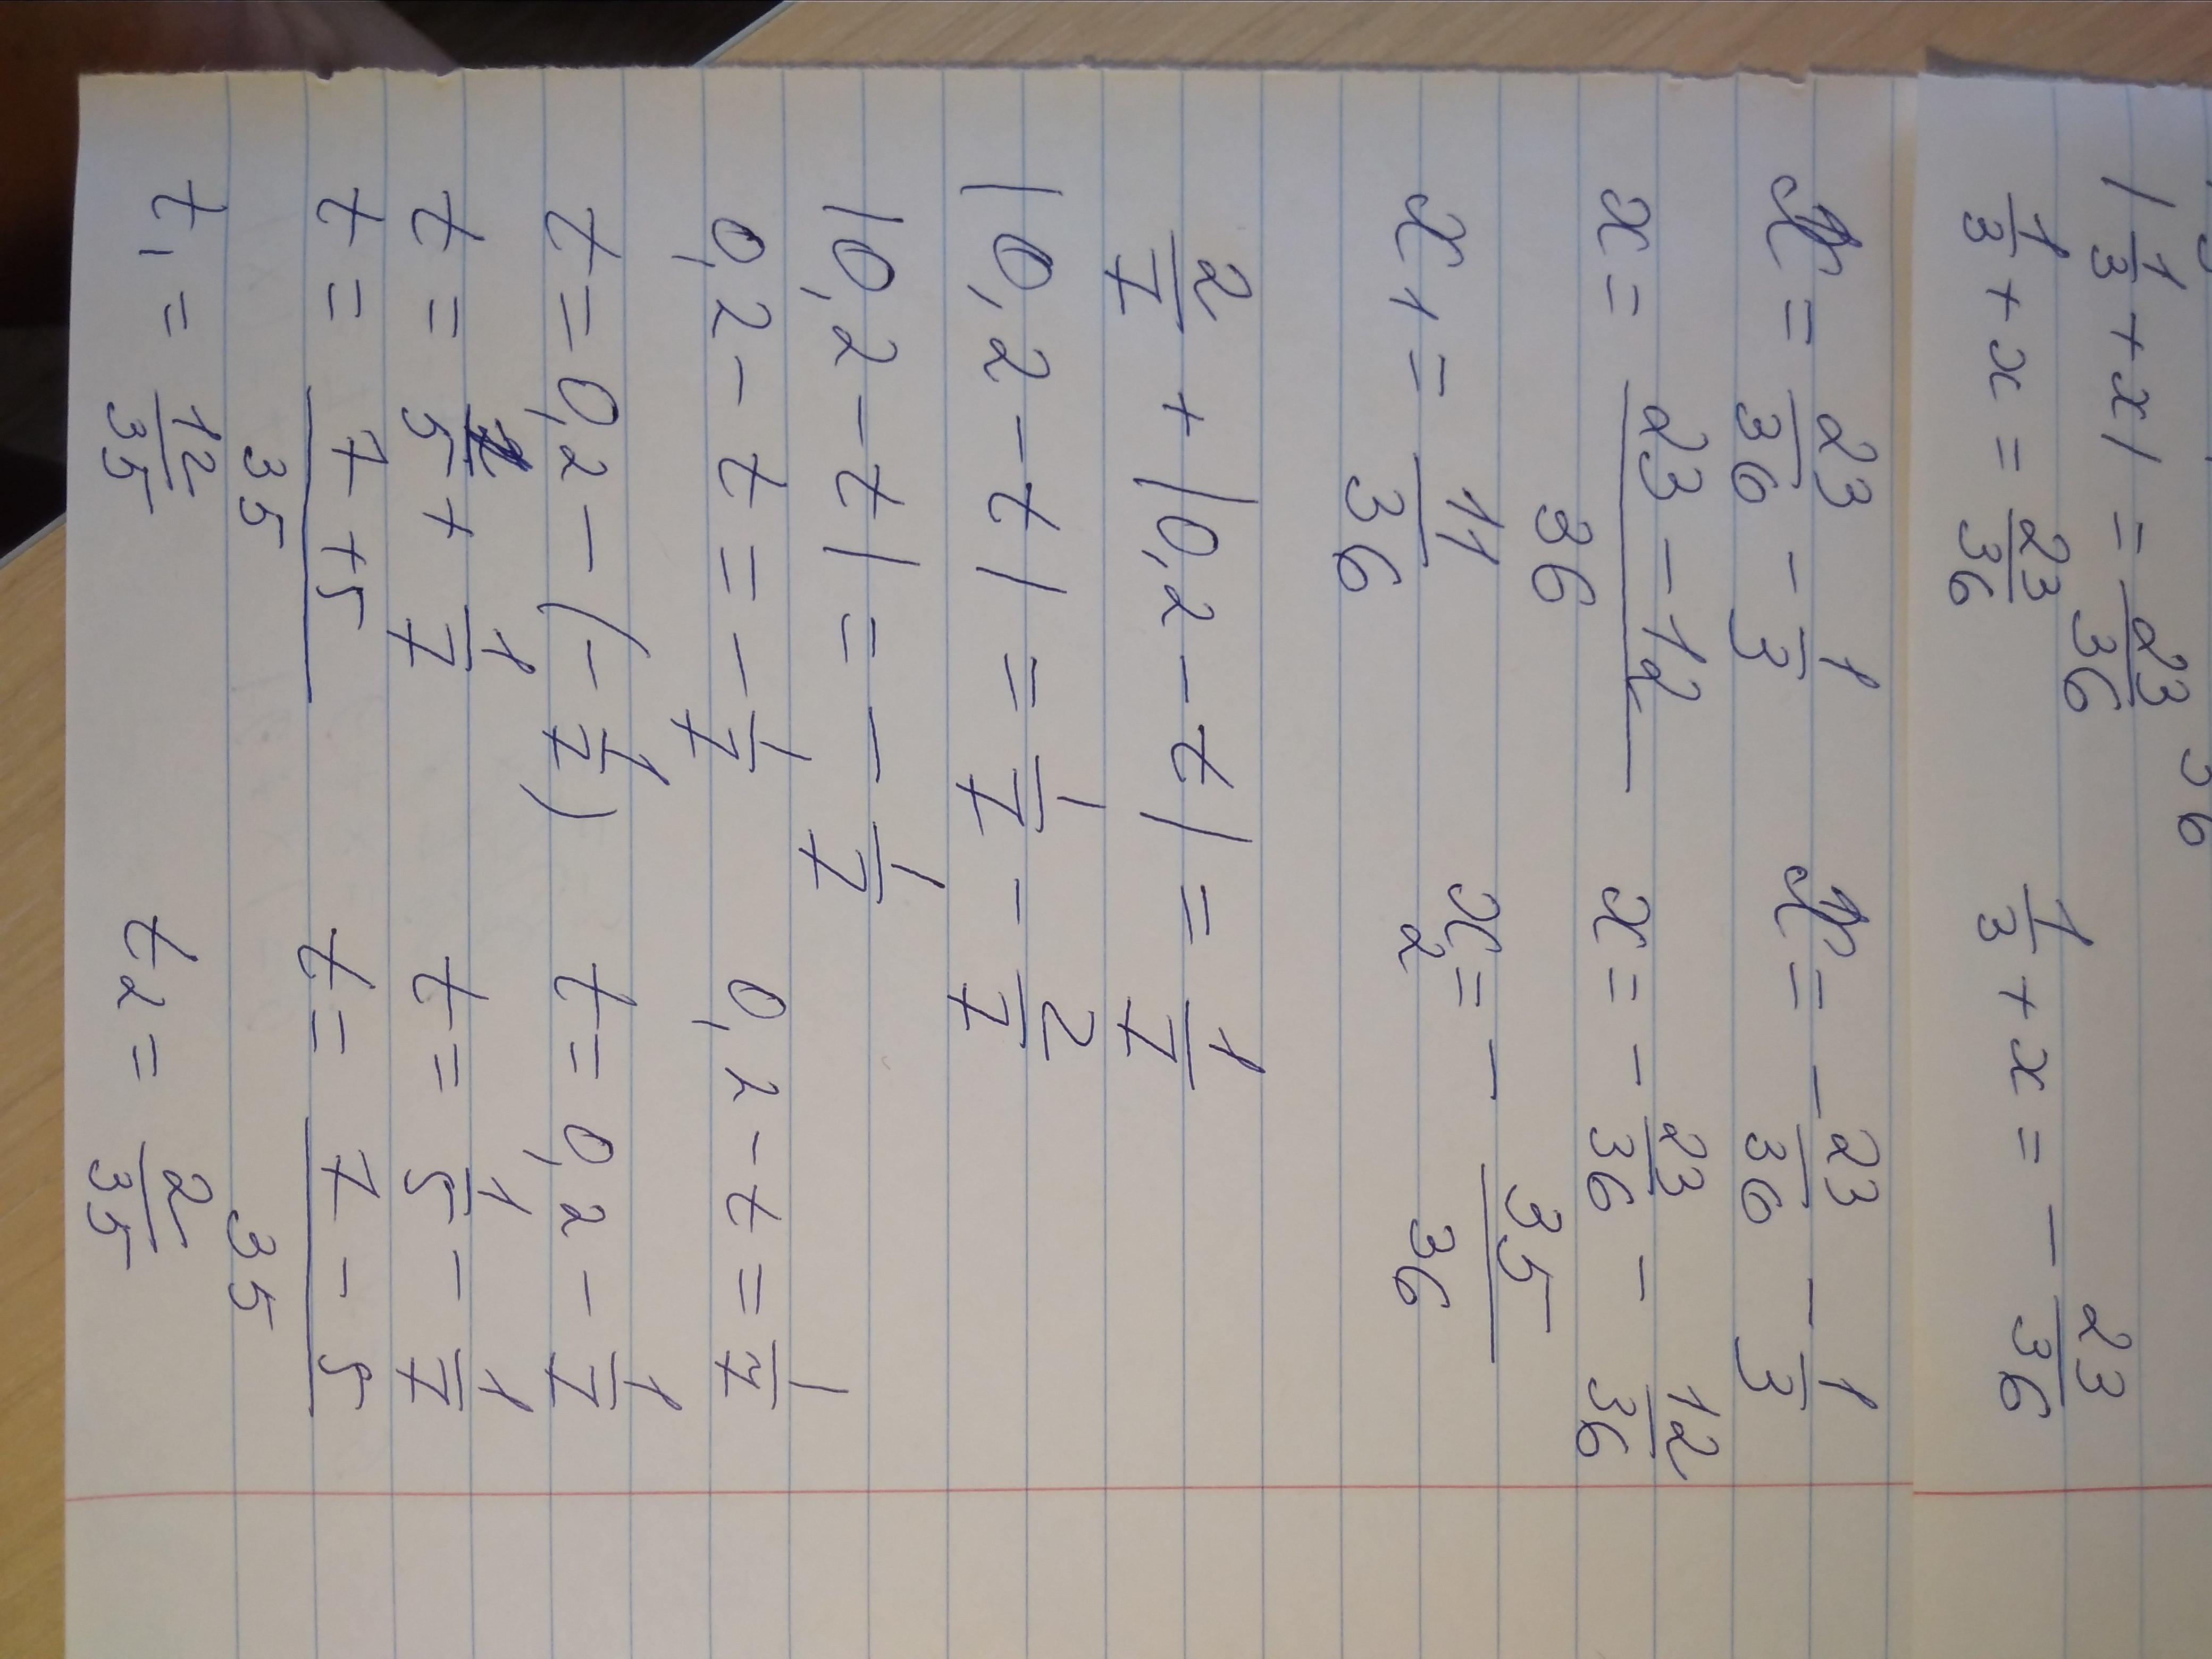 |1/3 + x| = 23/36
1/3 + x = 23/36    1/3 + x = - 23/36
x = 23/36 - 1/3    x = - 23/36 - 1/3
x = (23 - 12)/36    x = - 23/36 - 12/36
x1 = 11/36    x2 = - 35/36
2/7 + |0,2 - t| = 1/7
|0,2 - t| = 1/7 - 2/7
|0,2 - t| = - 1/7
0,2 - t = - 1/7    0,2 - t = 1/7
t = 0,2 - (- 1/7)    t = 0,2 - 1/7
t = 1/5 + 1/7    t = 1/5 - 1/7
t = (7 + 5)/35    t = (7 - 5)/35
t1 = 12/35    t2 = 2/35